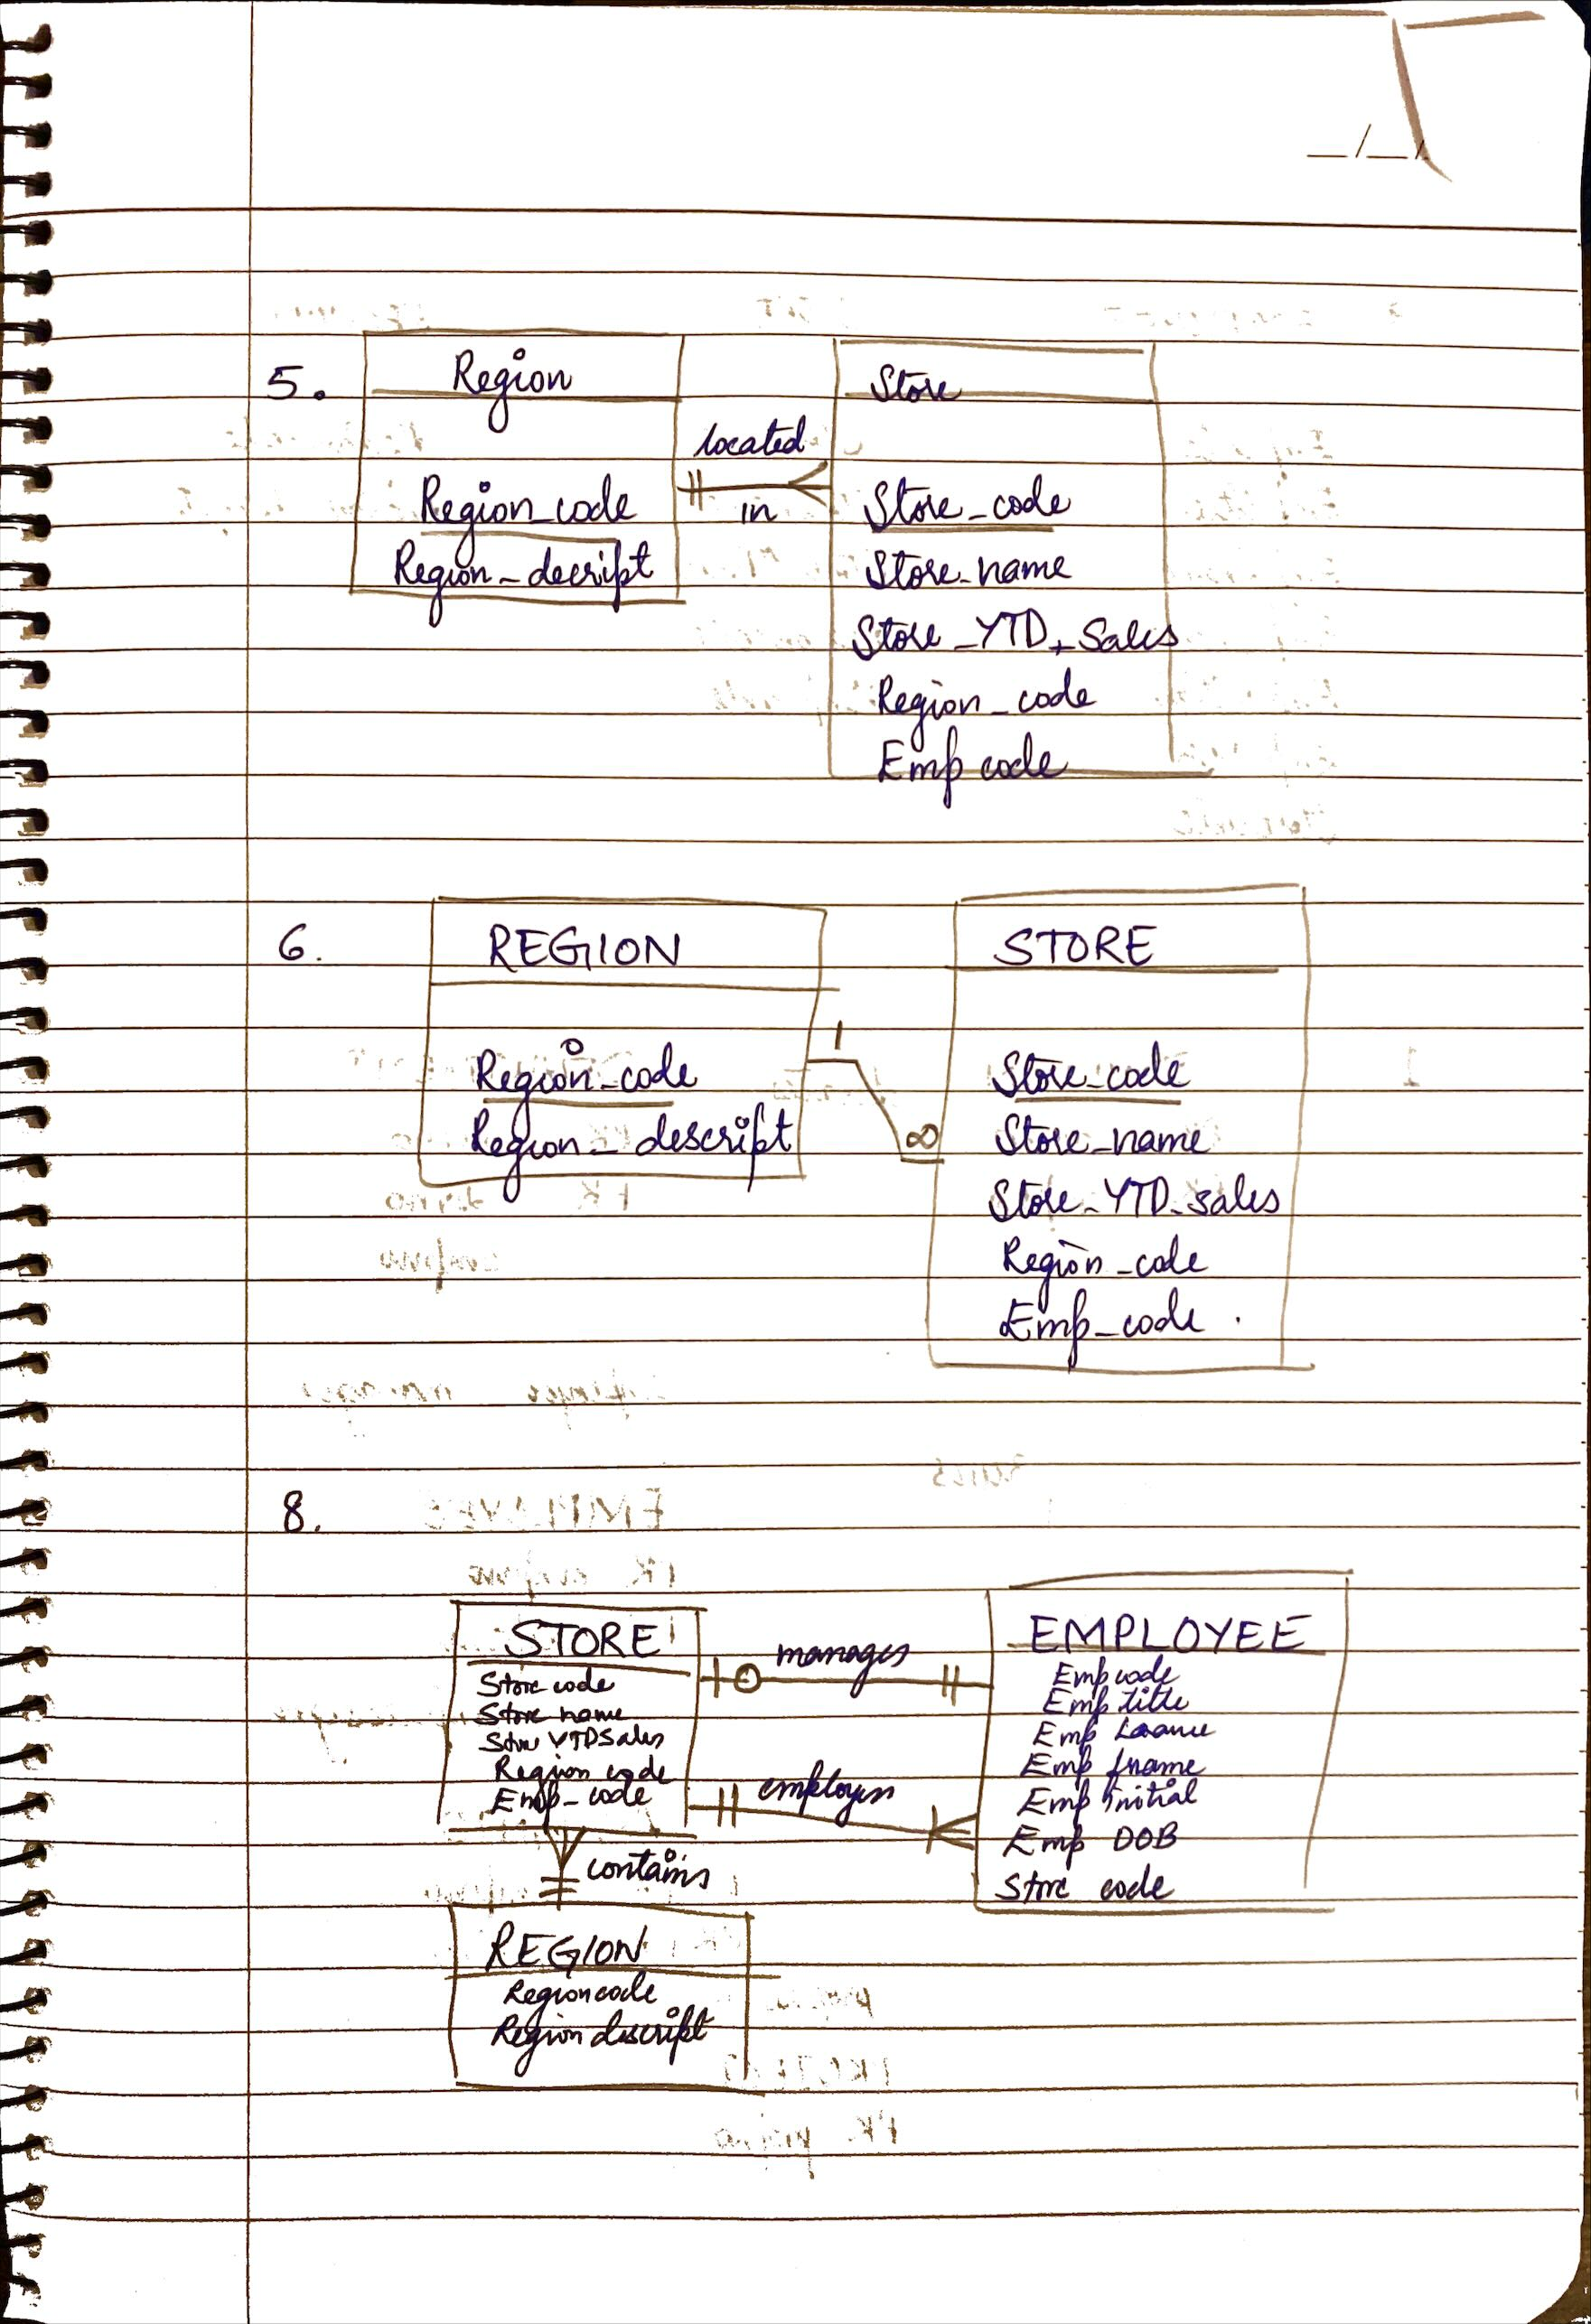 __/__/
5.
Region
Store
located
in
Region_code
Region_decript
Store_code
Store_name
Store_YTD_Sales
Region_code
Emp code
6.
REGION
STORE
1
∞
Region_code
Region_descript
Store_code
Store_name
Store_YTD_sales
Region_code
Emp_code.
8.
STORE
Store code
Store name
Store YTD Sales
Region code
Emp_code
manages
employs
contains
EMPLOYEE
Emp code
Emp title
Emp Lname
Emp fname
Emp initial
Emp DOB
Store code
REGION
Region code
Region descript